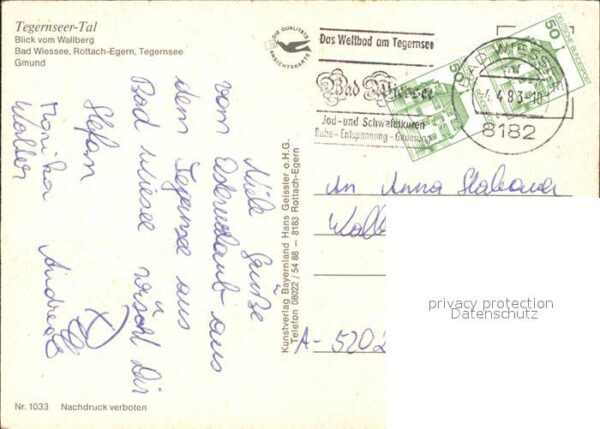 Tegernseer-Tal
Blick vom Wallberg
Bad Wiessee, Rottach-Egern, Tegernsee
Gmund
DIE QUALITÄTS
ANSICHTSKARTE
Das Weltbad am Tegernsee
Bad Wiessee
Jod- und Schwefelkuren
Ruhe - Entspannung - Genesung
BAD WIESSEE
-4.4.83-10
8182
50
50
DEUTSCHE BUNDESPOST
Viele Grüße
vom Osterurlaub aus
dem Tegernsee aus
Bad Wiesee wüscht Dir
Stefan
Monika
Andreas
Walter
Kunstverlag Bayernland Hans Geissler o.H.G.
Telefon 08022 / 54 88 — 8183 Rottach-Egern
An Anna
A-5202
privacy protection
Datenschutz
Nr. 1033 Nachdruck verboten